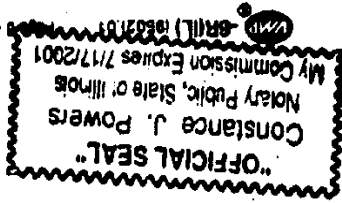 "OFFICIAL SEAL"
Constance J. Powers
Notary Public, State of Illinois
My Commission Expires 7/17/2001
VMP